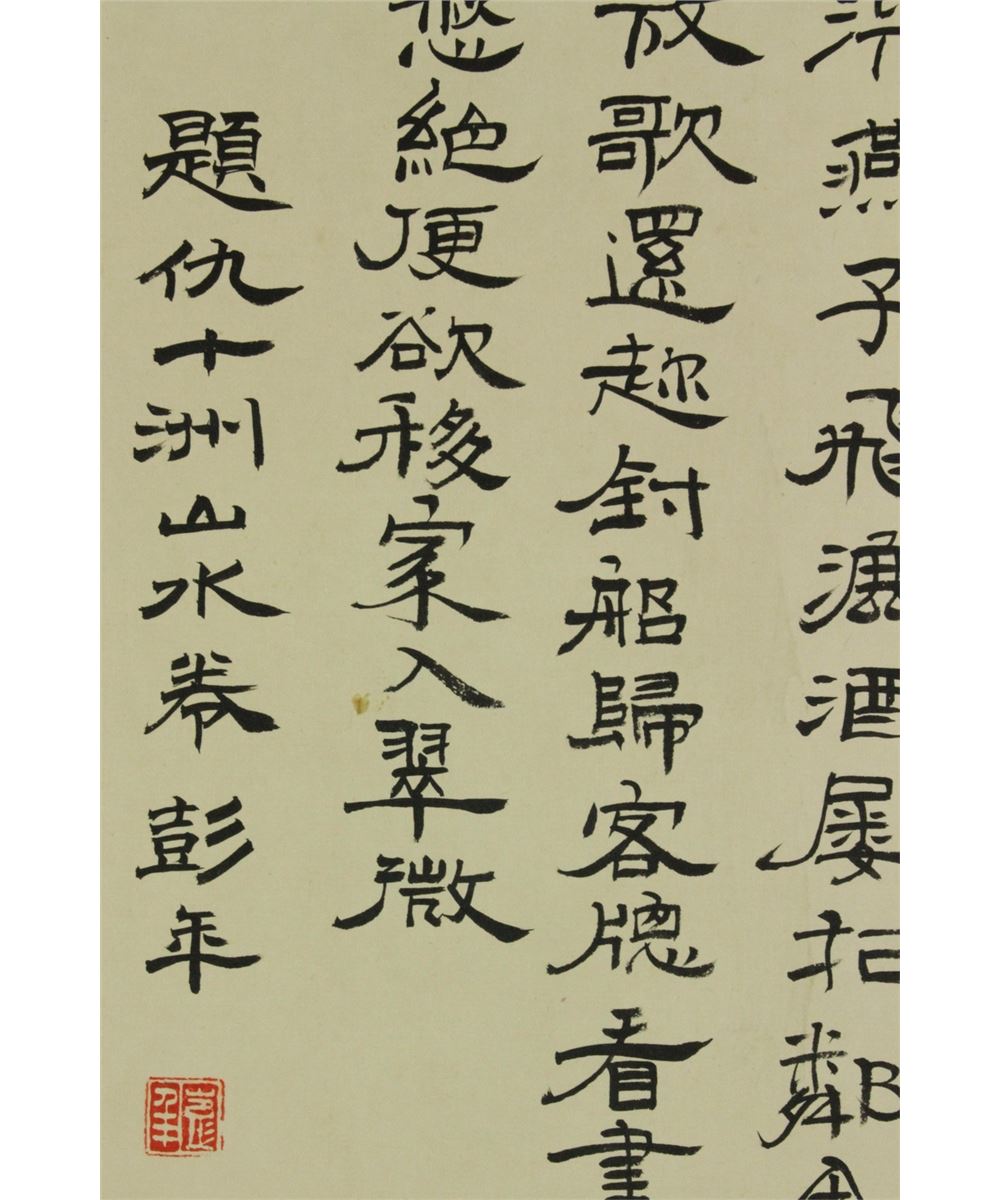 燕子飛漁酒屢扣鄰
放歌還趂釣船歸客牕看
絕便欲移家入翠微
題仇十洲山水卷彭年
彭年